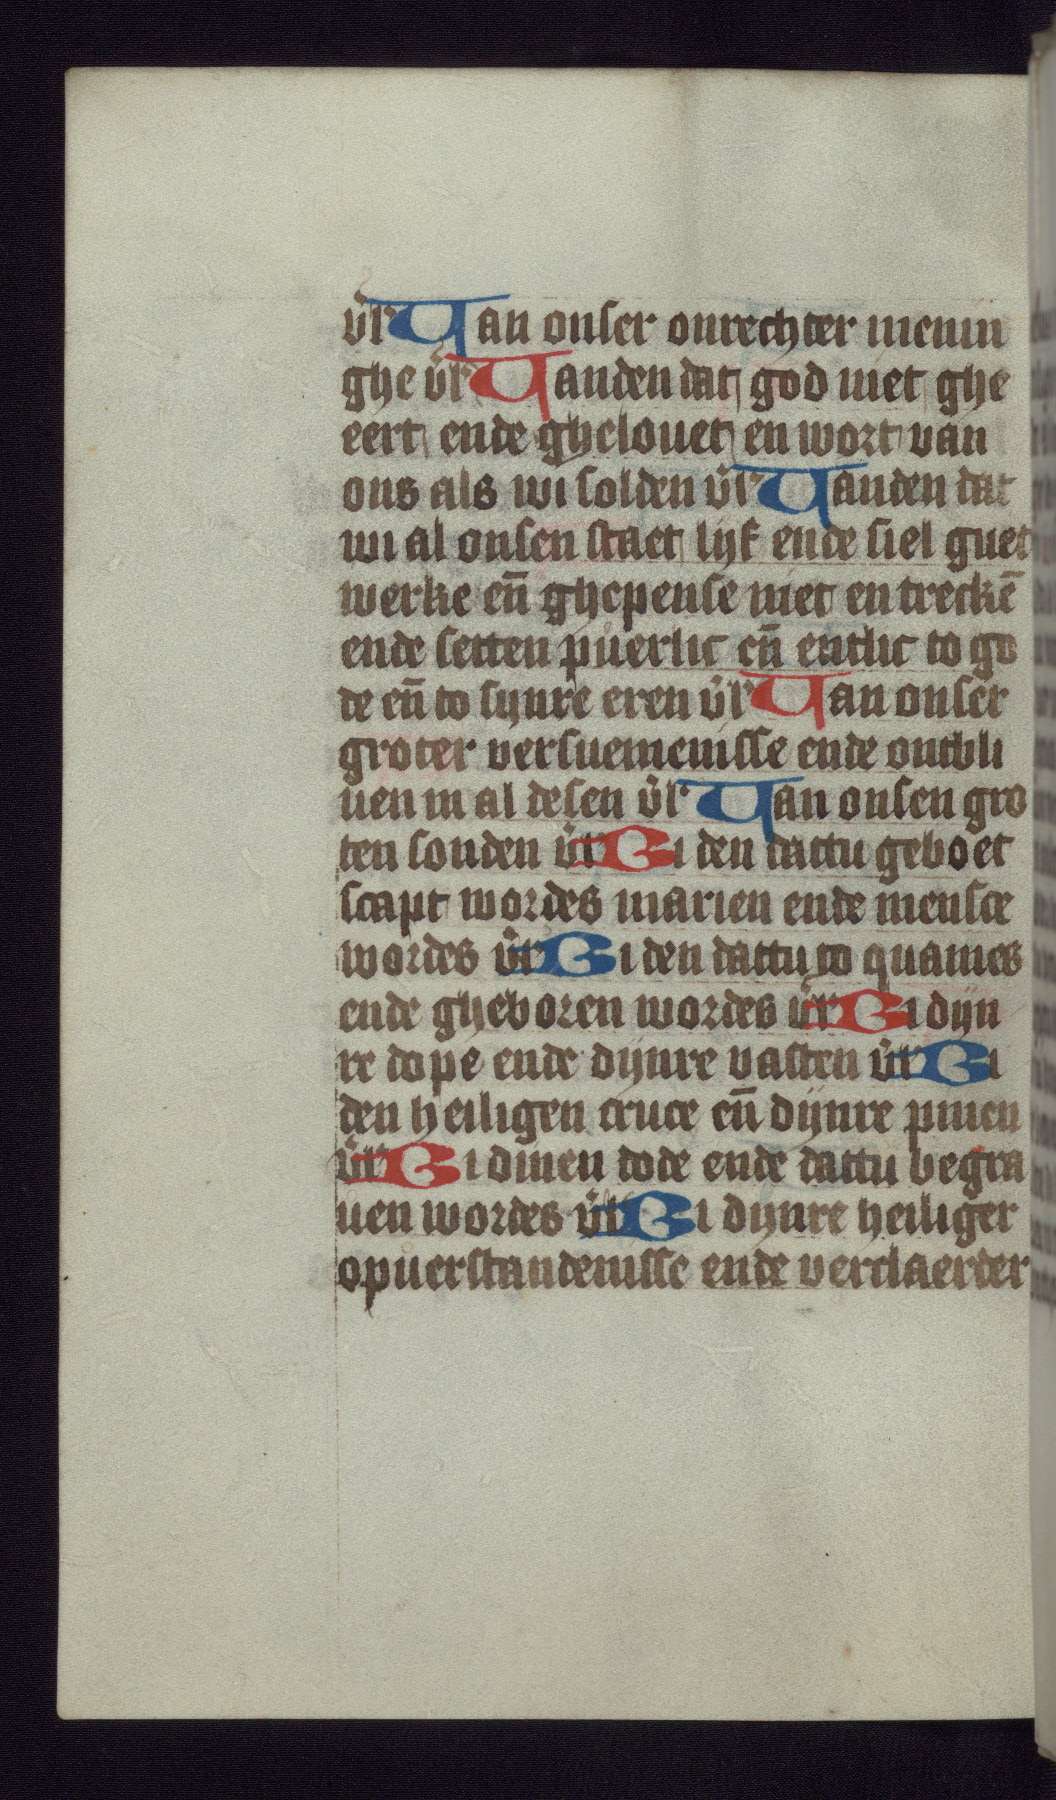 v̄l' Van onser onrechter menin
ghe v̄l' Van den dat god niet ghe
eert ende ghelouet en wort van
ons als wi solden v̄l' Van den dat
wi al onsen staet lijf ende siel guet
werke en̄ ghepense niet en treckē
ende setten puerlic en̄ entlic to go
de en̄ to synre eren v̄l' Van onser
groter versuemenisse ende ontbli
uen in al desen v̄l' Van onsen gro
ten sonden v̄l' Bi den dattu geboet
scapt wordes marien ende mensce
wordes v̄l' Bi den dattu to quames
ende gheboren wordes v̄l' Bi dijn
re dope ende dijnre vasten v̄l' Bi
den heiligen cruce en̄ dijnre pinen
v̄l' Bi dinen dode ende dattu begra
uen wordes v̄l' Bi dijnre heiliger
opuerstandenisse ende verclaerder